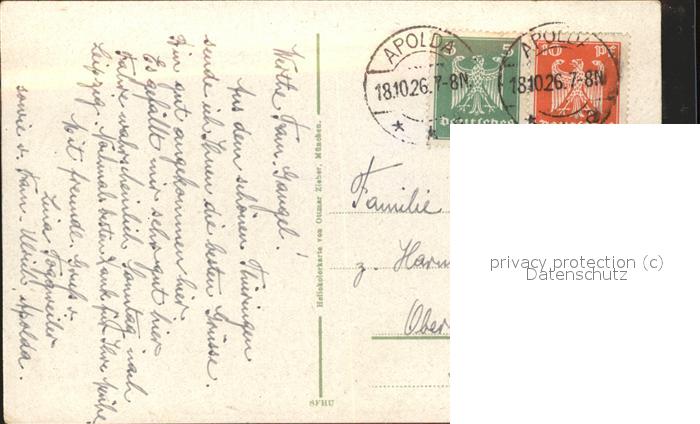 Werte Fam. Gangel!
Aus dem schönen Thüringen
sende ich Ihnen die besten Grüsse.
Bin gut angekommen hier.
Es gefällt mir sehr gut hier
Fahre wahrscheinlich Sonntag nach
Leipzig. Nochmals besten Dank für Ihre Mühe.
Mit freundl. Gruß
Lina
sowie v. Fam. Ulrich, Apolda.
Heliokolorkarte von Ottmar Zieher, München.
SFHU
APOLDA
18.10.26.7-8N
* *
5
Deutsches
APOLDA
18.10.26.7-8N
* a
10 Pf
Familie
z. Harm
Ober
privacy protection (c)
Datenschutz